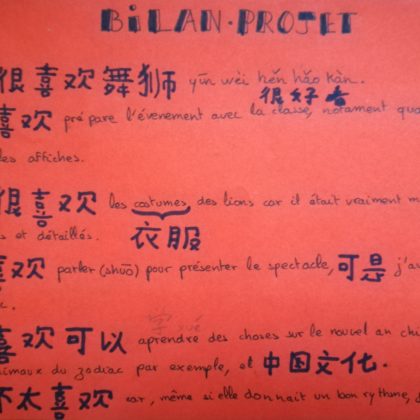 BiLAN·PROJET
很喜欢舞狮 yīn wèi hěn hǎo kàn.
很好看
喜欢 prépare l'évenement avec la classe, notament
les affiches.
很喜欢 les costumes des lions car il était vraiment
et détaillés. 衣服
喜欢 parler (shuō) pour présenter le spectacle, 可是 j'a
字 xué
喜欢可以 aprendre des choses sur le nouvel an chi
du zodiac par exemple, et 中国文化.
不太喜欢 car, même si elle donnait un bon rythme,